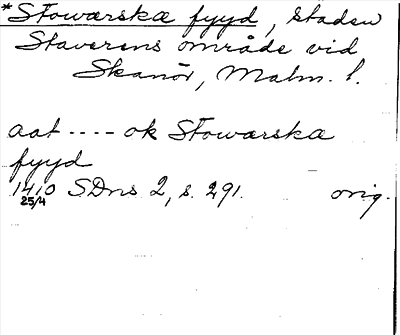 *Stowærskæ fyyd, staden
Staverens område vid
Skanör, Malm. l.
aat ---- ok Stowærskæ
fyyd
1410 SDns 2, s. 291. orig.
25/4